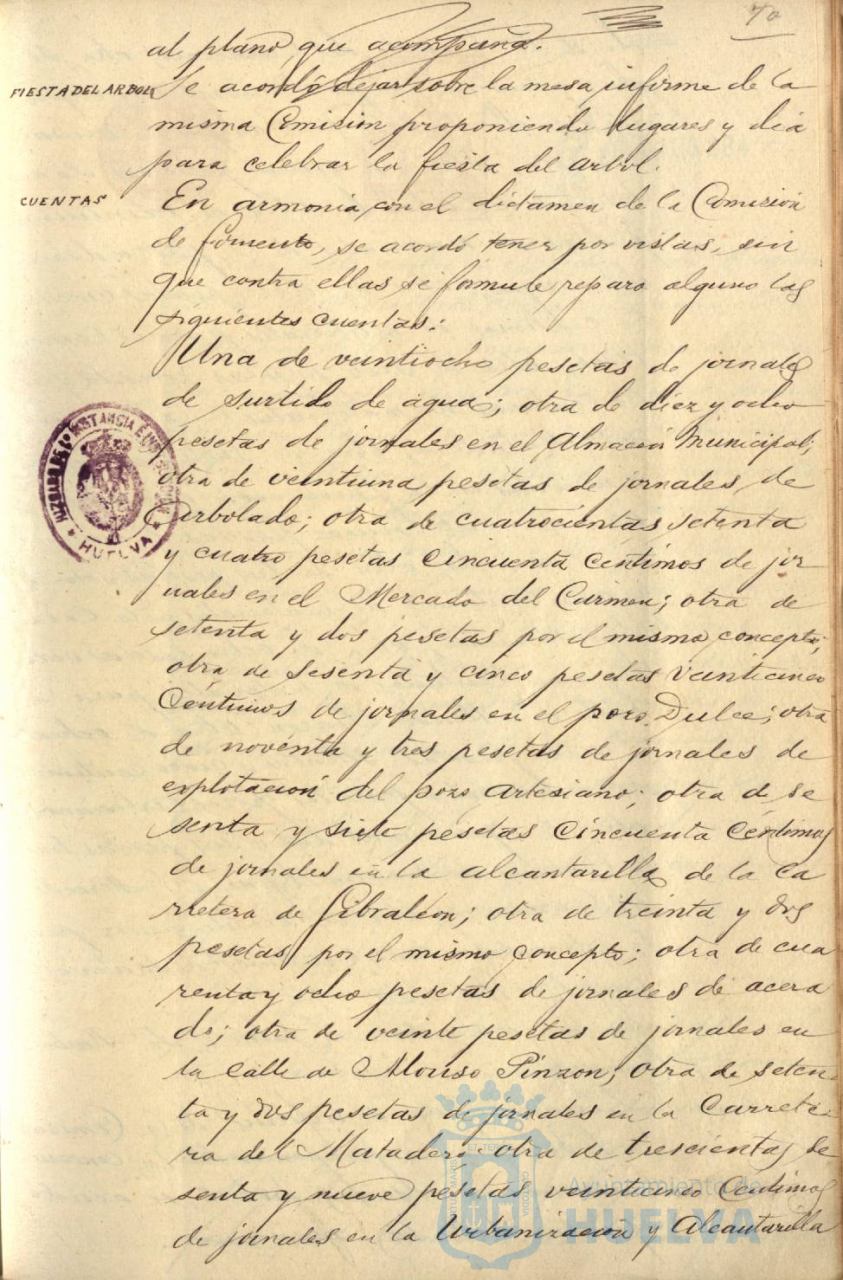 70
al plano, que acompaña.
FIESTA DEL ARBOL
Se acordó dejar sobre la mesa informe de la
misma Comision proponiendo lugares y dia
para celebrar la fiesta del arbol.
CUENTAS
En armonia con el dictamen de la Comisión
de fomento, se acordó tener por vistas, sin
que contra ellas se formule reparo alguno las
siguientes cuentas:
Una de veintiocho pesetas de jornales
de surtido de agua; otra de diez y ocho
pesetas de jornales en el Almacen Municipal;
otra de veintiuna pesetas de jornales de
Arbolado; otra de cuatrocientas setenta
y cuatro pesetas cincuenta centimos de jor
nales en el Mercado del Carmen; otra de
setenta y dos pesetas por el mismo concepto;
otra de sesenta y cinco pesetas veinticinco
Céntimos de jornales en el pozo Dulce; otra
de noventa y tres pesetas de jornales de
explotación del pozo artesiano; otra de se
senta y siete pesetas cincuenta céntimos
de jornales en la alcantarilla de la ca
rretera de Gibraleon; otra de treinta y dos
pesetas por el mismo concepto; otra de cua
renta y ocho pesetas de jornales de acera
do; otra de veinte pesetas de jornales en
la calle de Alonso Pinzon; otra de seten
ta y dos pesetas de jornales en la Carrete
ra del Matadero otra de trescientas se
senta y nueve pesetas veinticinco centimos
de jornales en la Urbanización y Alcantarilla
JUZGADO DE 1ª INSTANCIA E
HUELVA
Ayuntamiento de
HUELVA